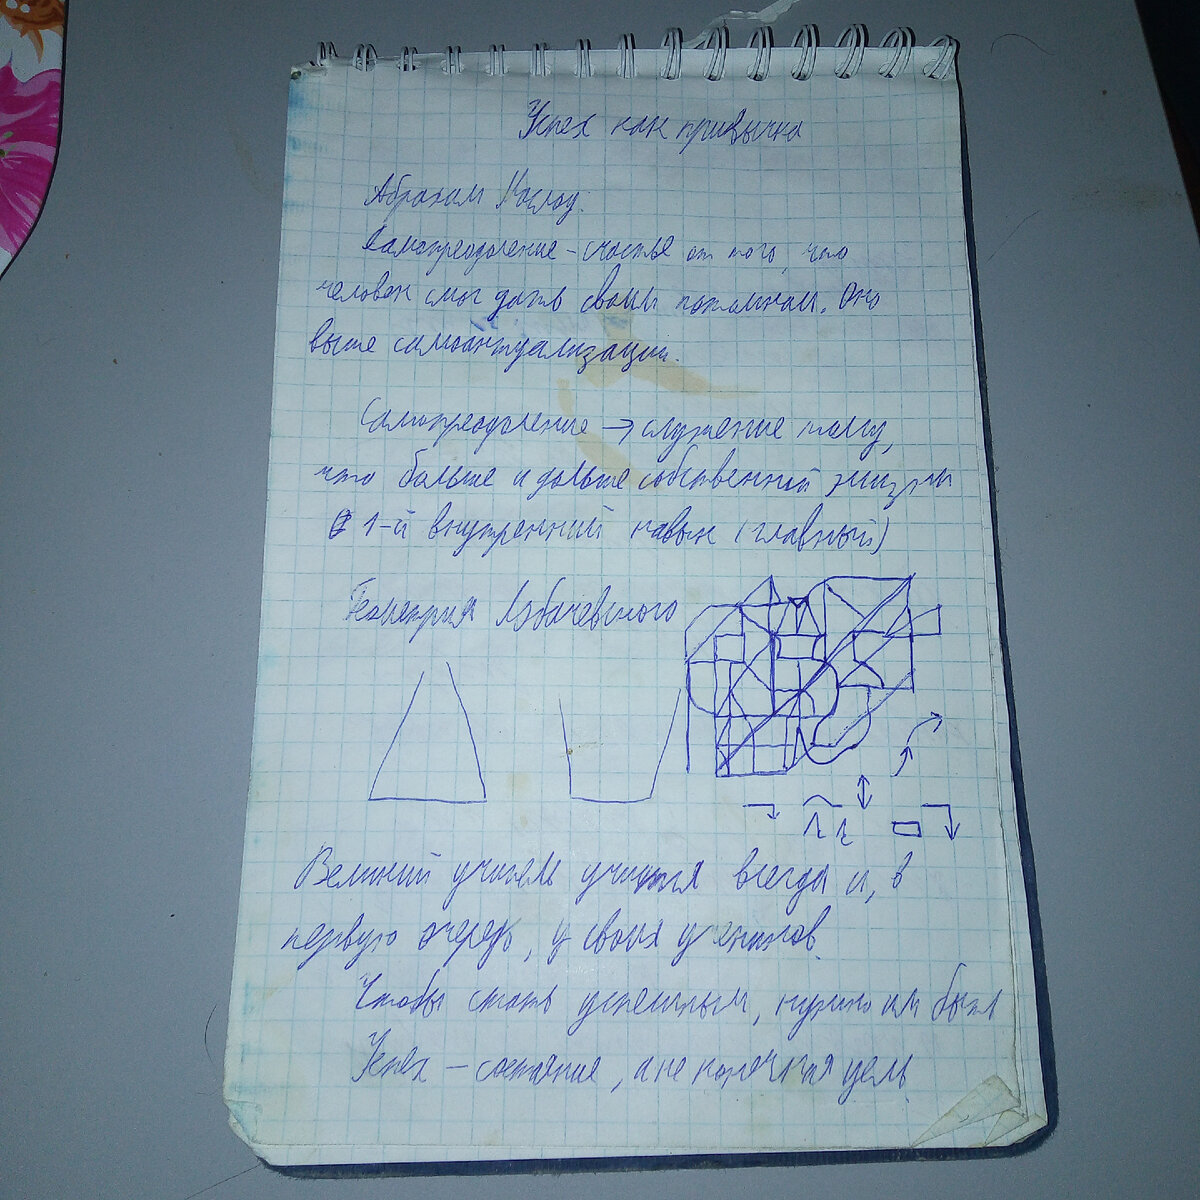 Успех как привычка
Абрахам Маслоу.
Самопреодоление – счастье от того, что
человек смог дать своим потомкам. Оно
выше самоактуализации.
Самопреодоление → служение тому,
что больше и дольше собственной жизни
1-й внутренний навык (главный)
Геометрия Лобачевского
Великий учитель учится всегда и, в
первую очередь, у своих учеников.
Чтобы стать успешным, нужно им быть
Успех – состояние, а не конечная цель